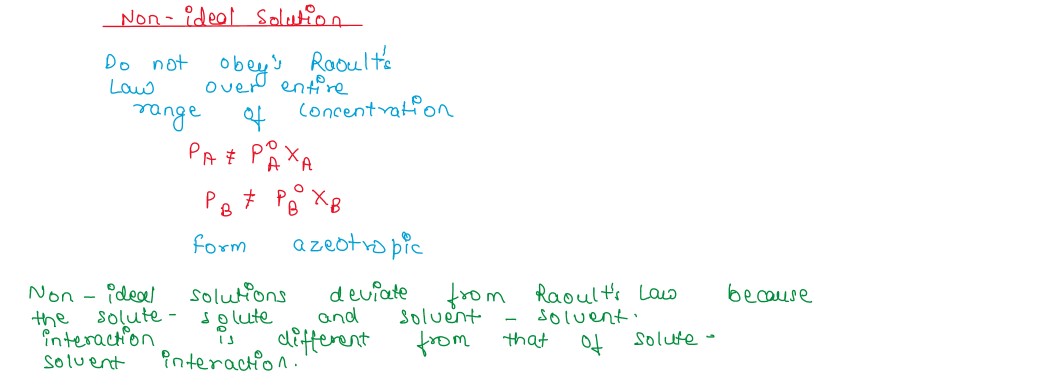 Non - ideal Solution
Do not obey's Raoult's
Law over entire
range of concentration
P_A ≠ P_A^0 X_A
P_B ≠ P_B^0 X_B
form azeotropic
Non - ideal solutions deviate from Raoult's Law because
the solute - solute and solvent - solvent.
interaction is different from that of solute -
solvent interaction.